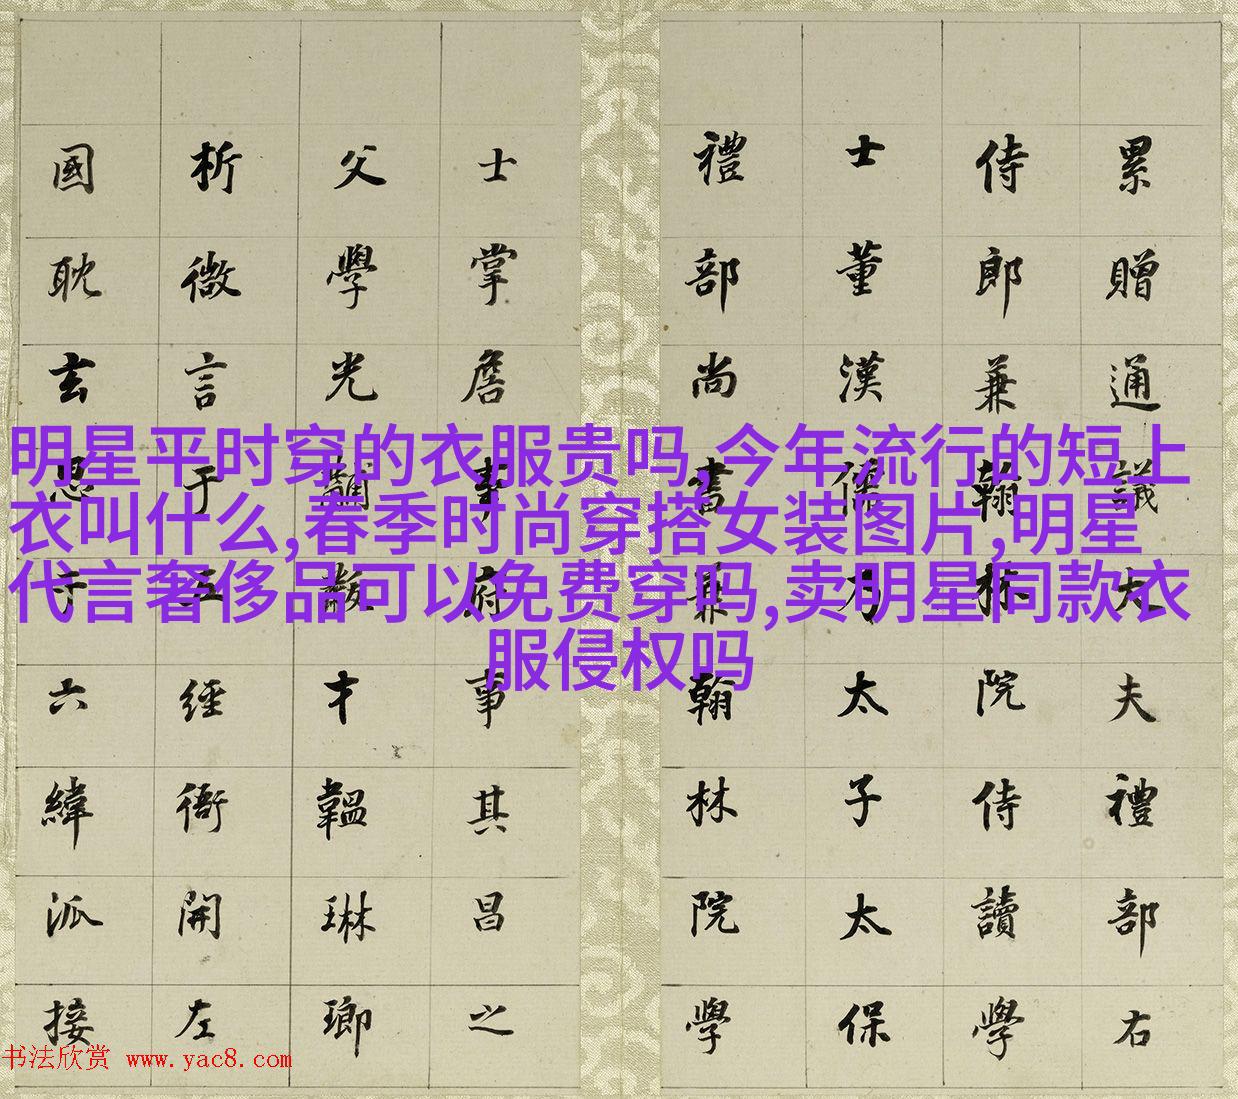 明星平时穿的衣服贵吗,今年流行的短上
衣叫什么,春季时尚穿搭女装图片,明星
代言奢侈品可以免费穿吗,卖明星同款衣
服侵权吗
累贈通議大夫禮部右
侍郎兼翰林院侍讀學
士董漢儒乃太子太保
禮部尚書兼翰林院學
士掌詹事府事其昌之
父學光黼黻才韞琳瑯
析微言于五經衢開左
國耽玄思于六緯派接
书法欣赏 www.yac8.com